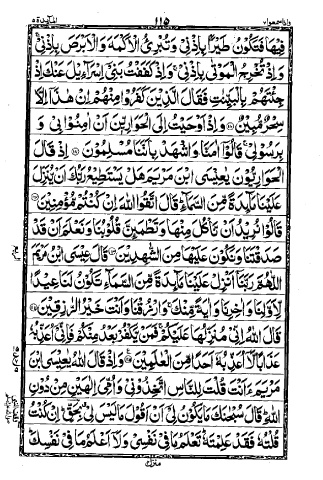 واذاسمعوا٧ ١١٥ المآئدة٥
فِيْهَا فَتَكُوْنُ طَيْرًۢا بِاِذْنِيْ وَتُبْرِئُ الْاَكْمَهَ وَالْاَبْرَصَ بِاِذْنِيْ ۚ
وَاِذْ تُخْرِجُ الْمَوْتٰى بِاِذْنِيْ ۚ وَاِذْ كَفَفْتُ بَنِيْۤ اِسْرَآءِيْلَ عَنْكَ اِذْ
جِئْتَهُمْ بِالْبَيِّنٰتِ فَقَالَ الَّذِيْنَ كَفَرُوْا مِنْهُمْ اِنْ هٰذَاۤ اِلَّا
سِحْرٌ مُّبِيْنٌ ۝ وَاِذْ اَوْحَيْتُ اِلَى الْحَوَارِيّٖنَ اَنْ اٰمِنُوْا بِيْ وَ
بِرَسُوْلِيْ ۚ قَالُوْۤا اٰمَنَّا وَاشْهَدْ بِاَنَّنَا مُسْلِمُوْنَ ۝ اِذْ قَالَ
الْحَوَارِيُّوْنَ يٰعِيْسَى ابْنَ مَرْيَمَ هَلْ يَسْتَطِيْعُ رَبُّكَ اَنْ يُّنَزِّلَ
عَلَيْنَا مَآئِدَةً مِّنَ السَّمَآءِ ؕ قَالَ اتَّقُوا اللّٰهَ اِنْ كُنْتُمْ مُّؤْمِنِيْنَ ۝
قَالُوْا نُرِيْدُ اَنْ نَّاْكُلَ مِنْهَا وَتَطْمَئِنَّ قُلُوْبُنَا وَنَعْلَمَ اَنْ قَدْ
صَدَقْتَنَا وَنَكُوْنَ عَلَيْهَا مِنَ الشّٰهِدِيْنَ ۝ قَالَ عِيْسَى ابْنُ مَرْيَمَ
اللّٰهُمَّ رَبَّنَاۤ اَنْزِلْ عَلَيْنَا مَآئِدَةً مِّنَ السَّمَآءِ تَكُوْنُ لَنَا عِيْدًا
لِّاَوَّلِنَا وَاٰخِرِنَا وَاٰيَةً مِّنْكَ ۚ وَارْزُقْنَا وَاَنْتَ خَيْرُ الرّٰزِقِيْنَ ۝
قَالَ اللّٰهُ اِنِّيْ مُنَزِّلُهَا عَلَيْكُمْ ۚ فَمَنْ يَّكْفُرْ بَعْدُ مِنْكُمْ فَاِنِّيْۤ اُعَذِّبُهٗ
عَذَابًا لَّاۤ اُعَذِّبُهٗۤ اَحَدًا مِّنَ الْعٰلَمِيْنَ ۝ وَاِذْ قَالَ اللّٰهُ يٰعِيْسَى ابْنَ
مَرْيَمَ ءَاَنْتَ قُلْتَ لِلنَّاسِ اتَّخِذُوْنِيْ وَاُمِّيَ اِلٰهَيْنِ مِنْ دُوْنِ
اللّٰهِ ؕ قَالَ سُبْحٰنَكَ مَا يَكُوْنُ لِيْۤ اَنْ اَقُوْلَ مَا لَيْسَ لِيْ بِحَقٍّ ؕ اِنْ كُنْتُ
قُلْتُهٗ فَقَدْ عَلِمْتَهٗ ؕ تَعْلَمُ مَا فِيْ نَفْسِيْ وَلَاۤ اَعْلَمُ مَا فِيْ نَفْسِكَ ؕ
منزل